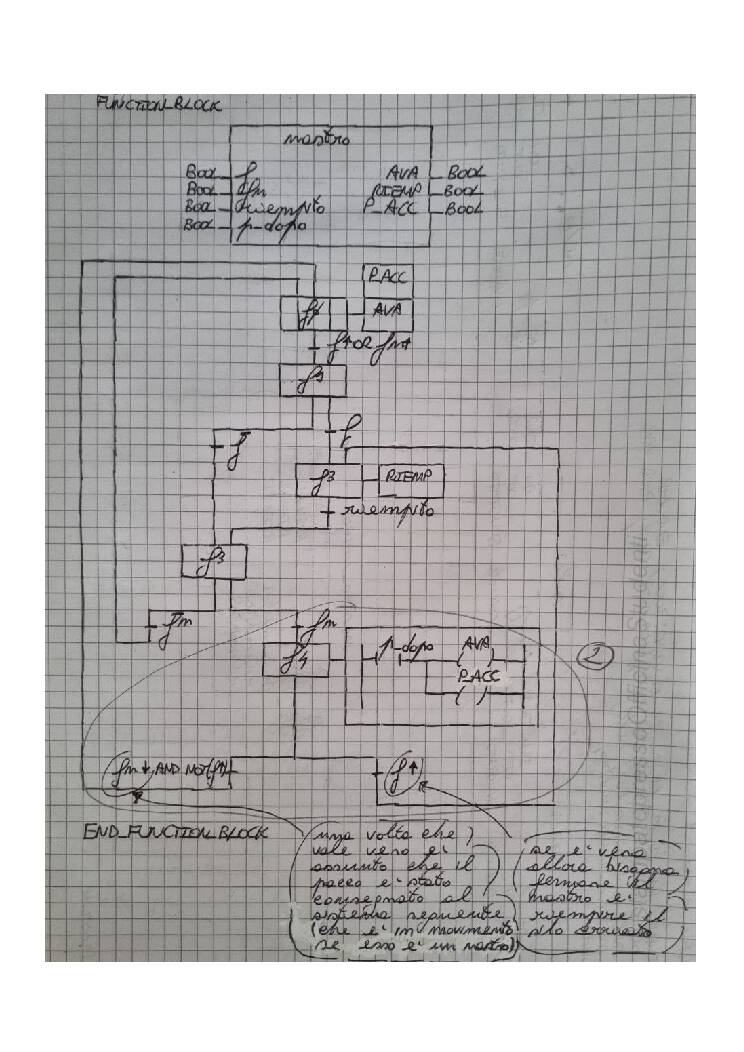 FUNCTION_BLOCK
nastro
Bool f AVA Bool
Bool fm RIEMP Bool
Bool riempito P_ACC Bool
Bool p_dopo
P_ACC
AVA
f↑ OR fm↑
f
f3 RIEMP
riempito
f3
fm fm
f4 p_dopo AVA
P_ACC
2
fm↓ AND NOT(f↑) f↑
END_FUNCTION_BLOCK
una volta che
vale vero e'
assunto che il
pacco e' stato
consegnato al
sistema seguente
(che e' in movimento
se esso e' un nastro)
se e' vero
allora bisogna
fermare il
nastro e'
riempire il